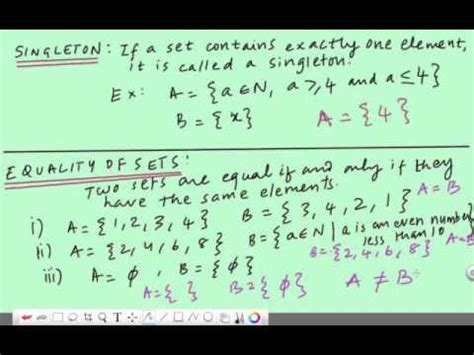 SINGLETON: If a set contains exactly one element,
it is called a singleton.
Ex: A = {a∈N, a≥4 and a≤4}
B = {x} A = {4}
EQUALITY OF SETS:
Two sets are equal if and only if they
have the same elements.
i) A = {1, 2, 3, 4} B = {3, 4, 2, 1} A = B
ii) A = {2, 4, 6, 8} B = {a∈N | a is an even number
less than 10}
B = {2, 4, 6, 8} A =
iii) A = ϕ , B = {ϕ}
A = { } B = {ϕ} A ≠ B